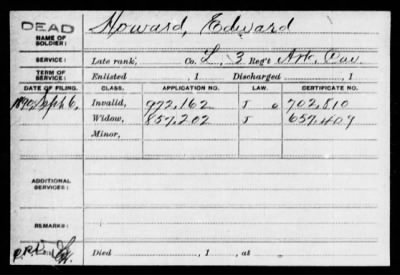 DEAD
Howard, Edward
NAME OF SOLDIER:
SERVICE: Late rank, Co. L, 3 Reg't Ark. Cav.
TERM OF SERVICE: Enlisted , 1 Discharged , 1
DATE OF FILING. CLASS. APPLICATION NO. LAW. CERTIFICATE NO.
1890 Sept 6, Invalid, 972,162 J 0 702,810
Widow, 857,202 J 657,409
Minor,
ADDITIONAL SERVICES:
REMARKS:
Died , 1 , at